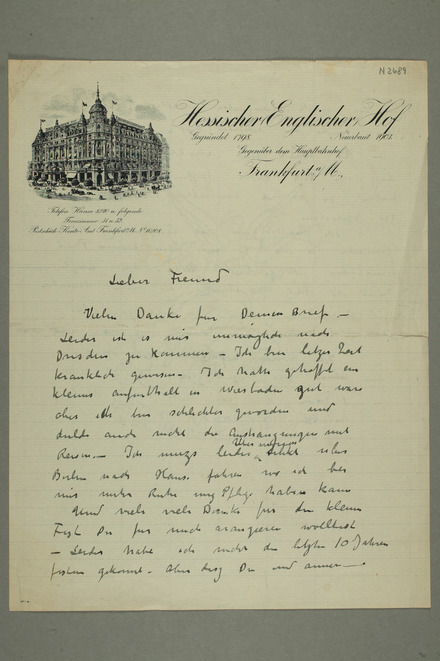 N 2689
Hessischer/Englischer/Hof
Gegründet 1798. Neuerbaut 1903.
Gegenüber dem Hauptbahnhof.
Frankfurt a/M.,
Telefon Hansa u. folgende
Postscheck-Konto: Amt Frankfurt a/M. Nº
Lieber Freund
Vielen Danke für Deinen Brief –
Leider ist es mir unmöglich nach
Dresden zu kommen – Ich bin letzer Zeit
kränklich gewesen – Ich hatte gehofft ein
kleines aufenthalt in Wiesbaden gut ware
aber ich bin schlechter geworden und
auch nicht die Anstrengungen mit
Reisen – Ich muss leider direkt uber
übermorgen
Berlin nach Haus fahren wo ich bei
mir unter Ruhe und Pflege haben kann
und viele viele Danke fur die kleine
Fest Du fur mich arangieren wolltest
– Leider habe ich nicht die letzten 10 Jahren
gekonnt – Aber dass Du und